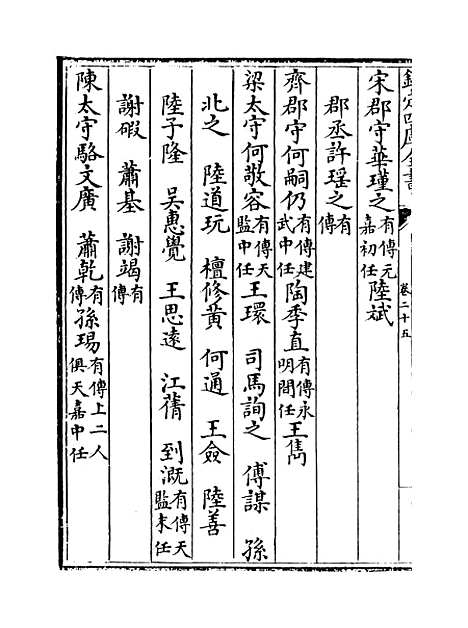 欽定四庫全書
卷二十五
宋郡守華瑾之有傳元嘉初任陸斌
郡丞許瑶之有傳
齊郡守何嗣仍有傳建武中任陶季直有傳永明間任王雋
梁太守何敬容有傳天監中任王環 司馬詢之 傅謀 孫
北之 陸道玩 檀修黄 何通 王僉 陸善
陸子隆 吳惠覺 王思遠 江蒨 到溉有傳天監末任
謝嘏 蕭基 謝竭有傳
陳太守駱文廣 蕭乾有傳孫瑒有傳上二人俱天嘉中任